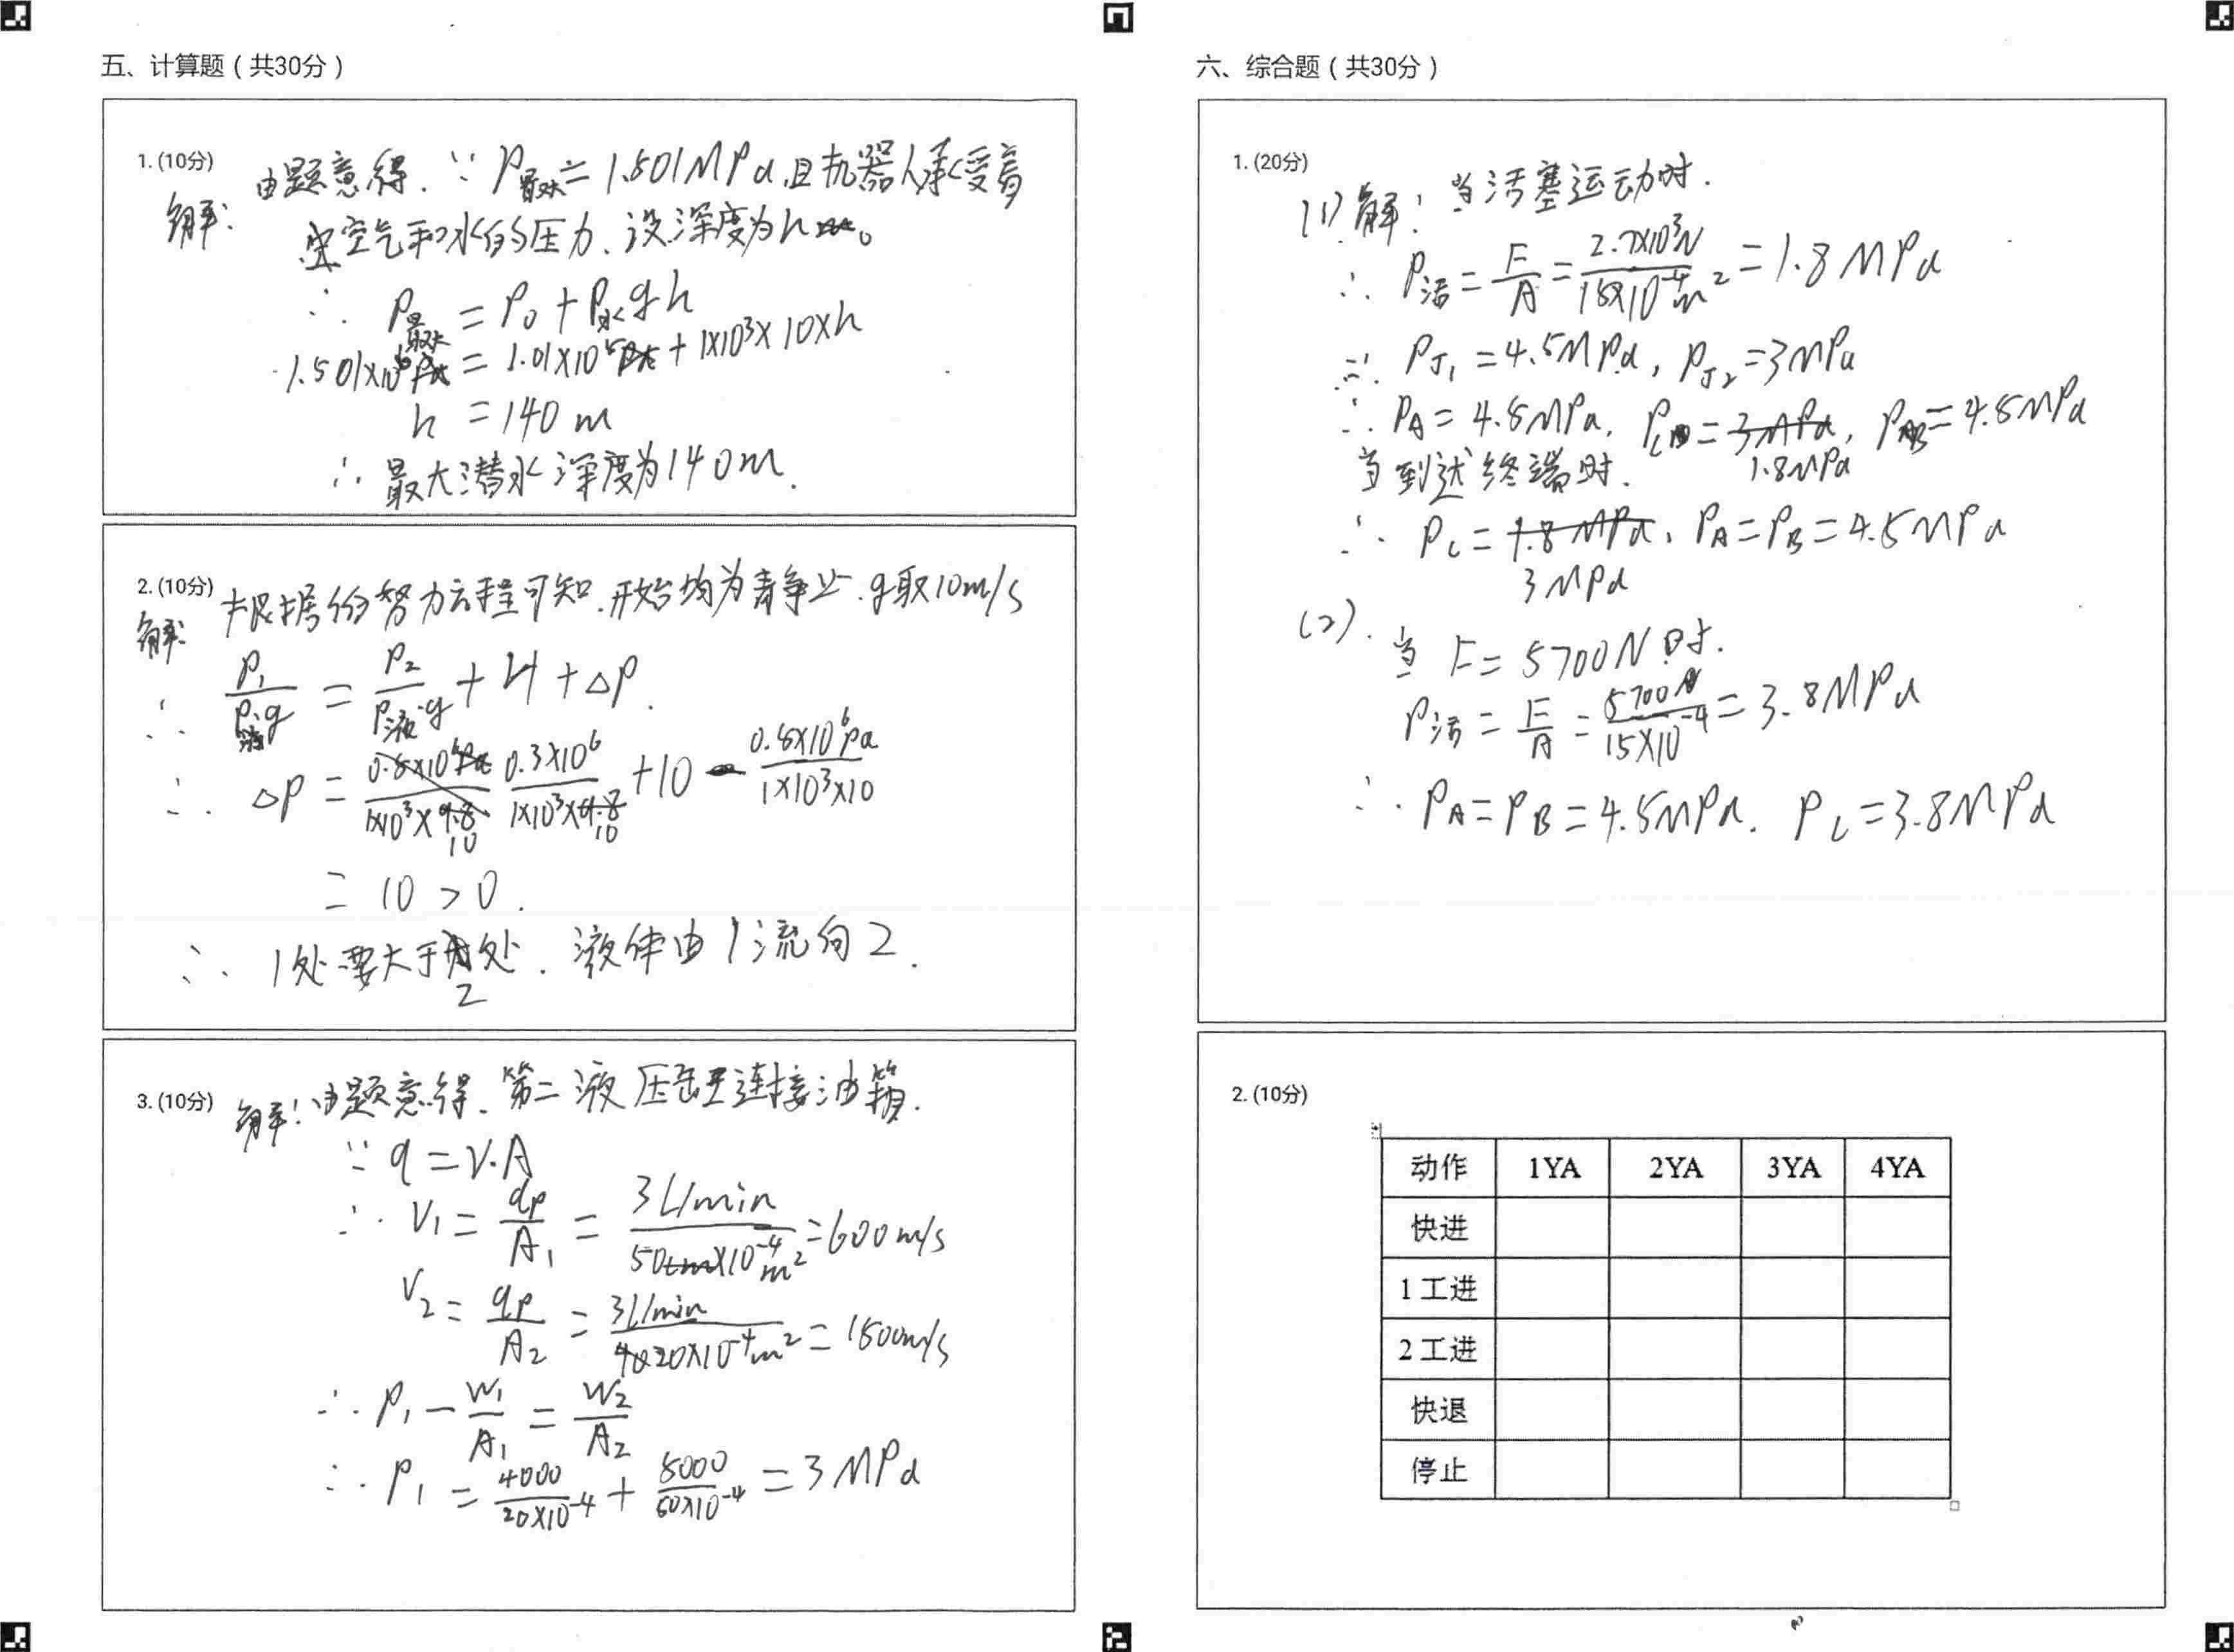 五、计算题（共30分）
1. (10分)
解： 由题意得. ∵ P最大 = 1.501MPa, 且机器人承受着
空气和水的压力、设深度为h。
∴ P最大 = P0 + P水gh
1.501×10⁶ = 1.01×10⁵ + 1×10³×10×h
h = 140 m
∴ 最大潜水深度为140m.
2. (10分)
解: 根据伯努力方程可知. 开始均为静止. g取10m/s
∴ P1/P液g = P2/P液g + H + △P.
∴ △P = 0.3×10⁶/1×10³×10 + 10 - 0.5×10⁶Pa/1×10³×10
= 10 > 0.
∴ 1处要大于2处. 液体由1流向2.
3. (10分)
解: 由题意得、第二液压缸连接油箱.
∵ q = V·A
∴ V1 = qp/A1 = 3L/min/50×10⁻⁴m² = 600m/s
V2 = qp/A2 = 3L/min/20×10⁻⁴m² = 1500m/s
∴ P1 - W1/A1 = W2/A2
∴ P1 = 4000/20×10⁻⁴ + 5000/50×10⁻⁴ = 3MPa
六、综合题（共30分）
1. (20分)
(1) 解: 当活塞运动时.
∴ P活 = F/A = 2.7×10³N/15×10⁻⁴m² = 1.8MPa
∵ PJ1 = 4.5MPa, PJ2 = 3MPa
∴ PA = 4.5MPa, PC = 1.8MPa, PB = 4.5MPa
当到达终端时.
∴ PC = 3MPa, PA = PB = 4.5MPa
(2).
当 F = 5700N时.
P活 = F/A = 5700/15×10⁻⁴ = 3.8MPa
∴ PA = PB = 4.5MPa. PC = 3.8MPa
2. (10分)
动作 1YA 2YA 3YA 4YA
快进
1工进
2工进
快退
停止